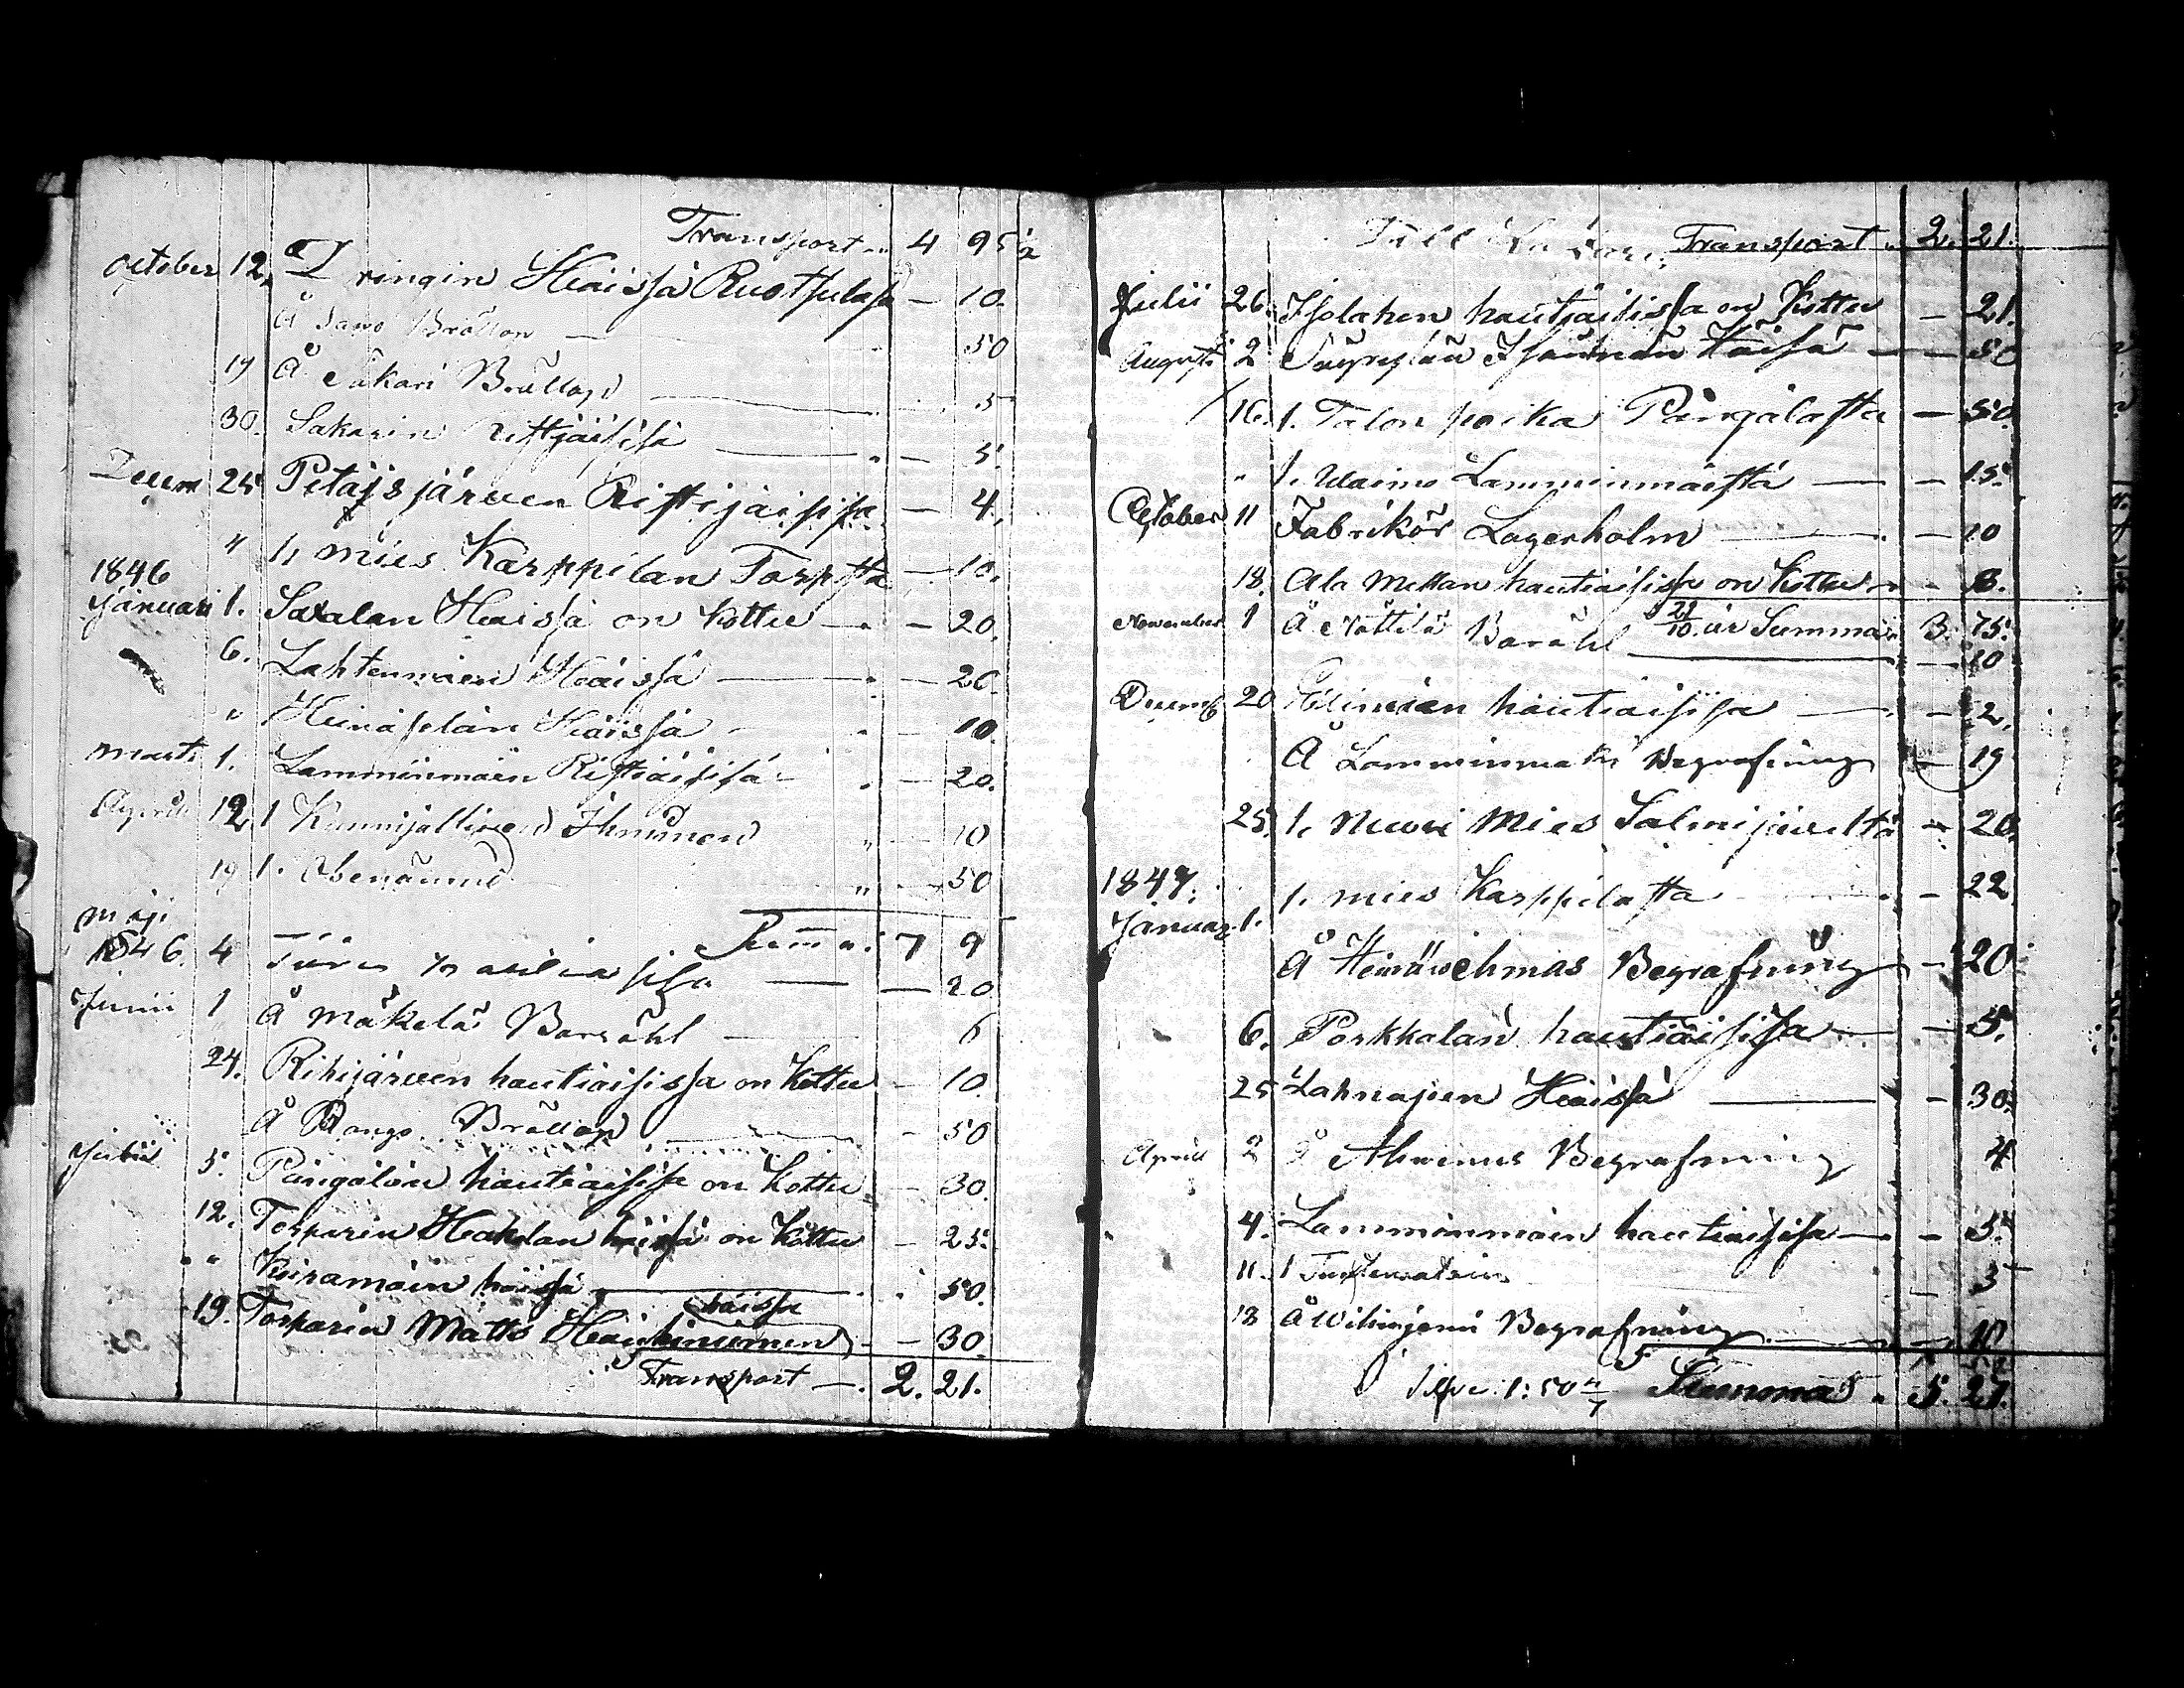 Transport 4 95½
October 12. Dringin Häissä Ruotsulasa — 10.
Å Sawo Bröllop — 50
19 Å Sakari Bröllop — 5
30. Sakarin ristjäisisä — 5.
Decem 25 Petäjsjärwen Ristijaisissa — 4.
" 1, mies Karppilan Torpsta — 10.
1846
Januari 1. Saxalan Häissä on kottu — 20.
6. Lahtenmäen Häissä — 20.
" Heinäselän Häissä — 10.
Marti 1. Lamminmäen Ristiäisisä — 20.
Aprill 12 1 Kunnijallinen Ihminen " — 10
19 1. " — 50
Maji Summa: 7 9
1846. 4 — 20
Junii 1 Å Mäkelä Barsöhl — 6
24. Rihijärwen hautiaisissa on Kottu — 10.
Å Pango Bröllop — 50
Julii 5. Pängälän hautiaisisa on kottu — 30.
12. Torparin Heakelan häissä on Kottu — 25.
" Kuiramäin häissä — 50.
häissä
19. Torparin Matts Heiskinninen — 30.
Transport — 2. 21.
Till Transport 2. 21.
Julii 26. Isolahen hautjaisissa on Kottu — 21.
Augusti 2 Häisä — 50
16. 1. Talon poika Pängälästa — 50.
" 1. Waimo Lamminmäistä — 15.
October 11 Fabrikör Lagerholm — 10
18. Ala Mettan hautiaisissa on Kottu — 8.
November 1 Å Nättilä Barsöhl 21/10 är Summa 3. 75.
— 10
Decemb 20 hautiaisisa — 2.
Å Lamminmäki Begrafning — 19
25. 1, Nuori Mies Salmijäweltä — 20.
1847. 1. mies Karppilasta — 22
Januar. 1.
Å Heinäwehmas Begrafning — 20.
6. Porkkalan hautiäisisa — 5.
25 Lahnajien Häissä — 30.
Aprill 2 Å Ahwenus Begrafning 4
4. Lamminmäin hautiaisisa — 5.
11. 1 — 5
18 Å Wihinjemi Begrafning — 10
1:50 Summa 5. 27.